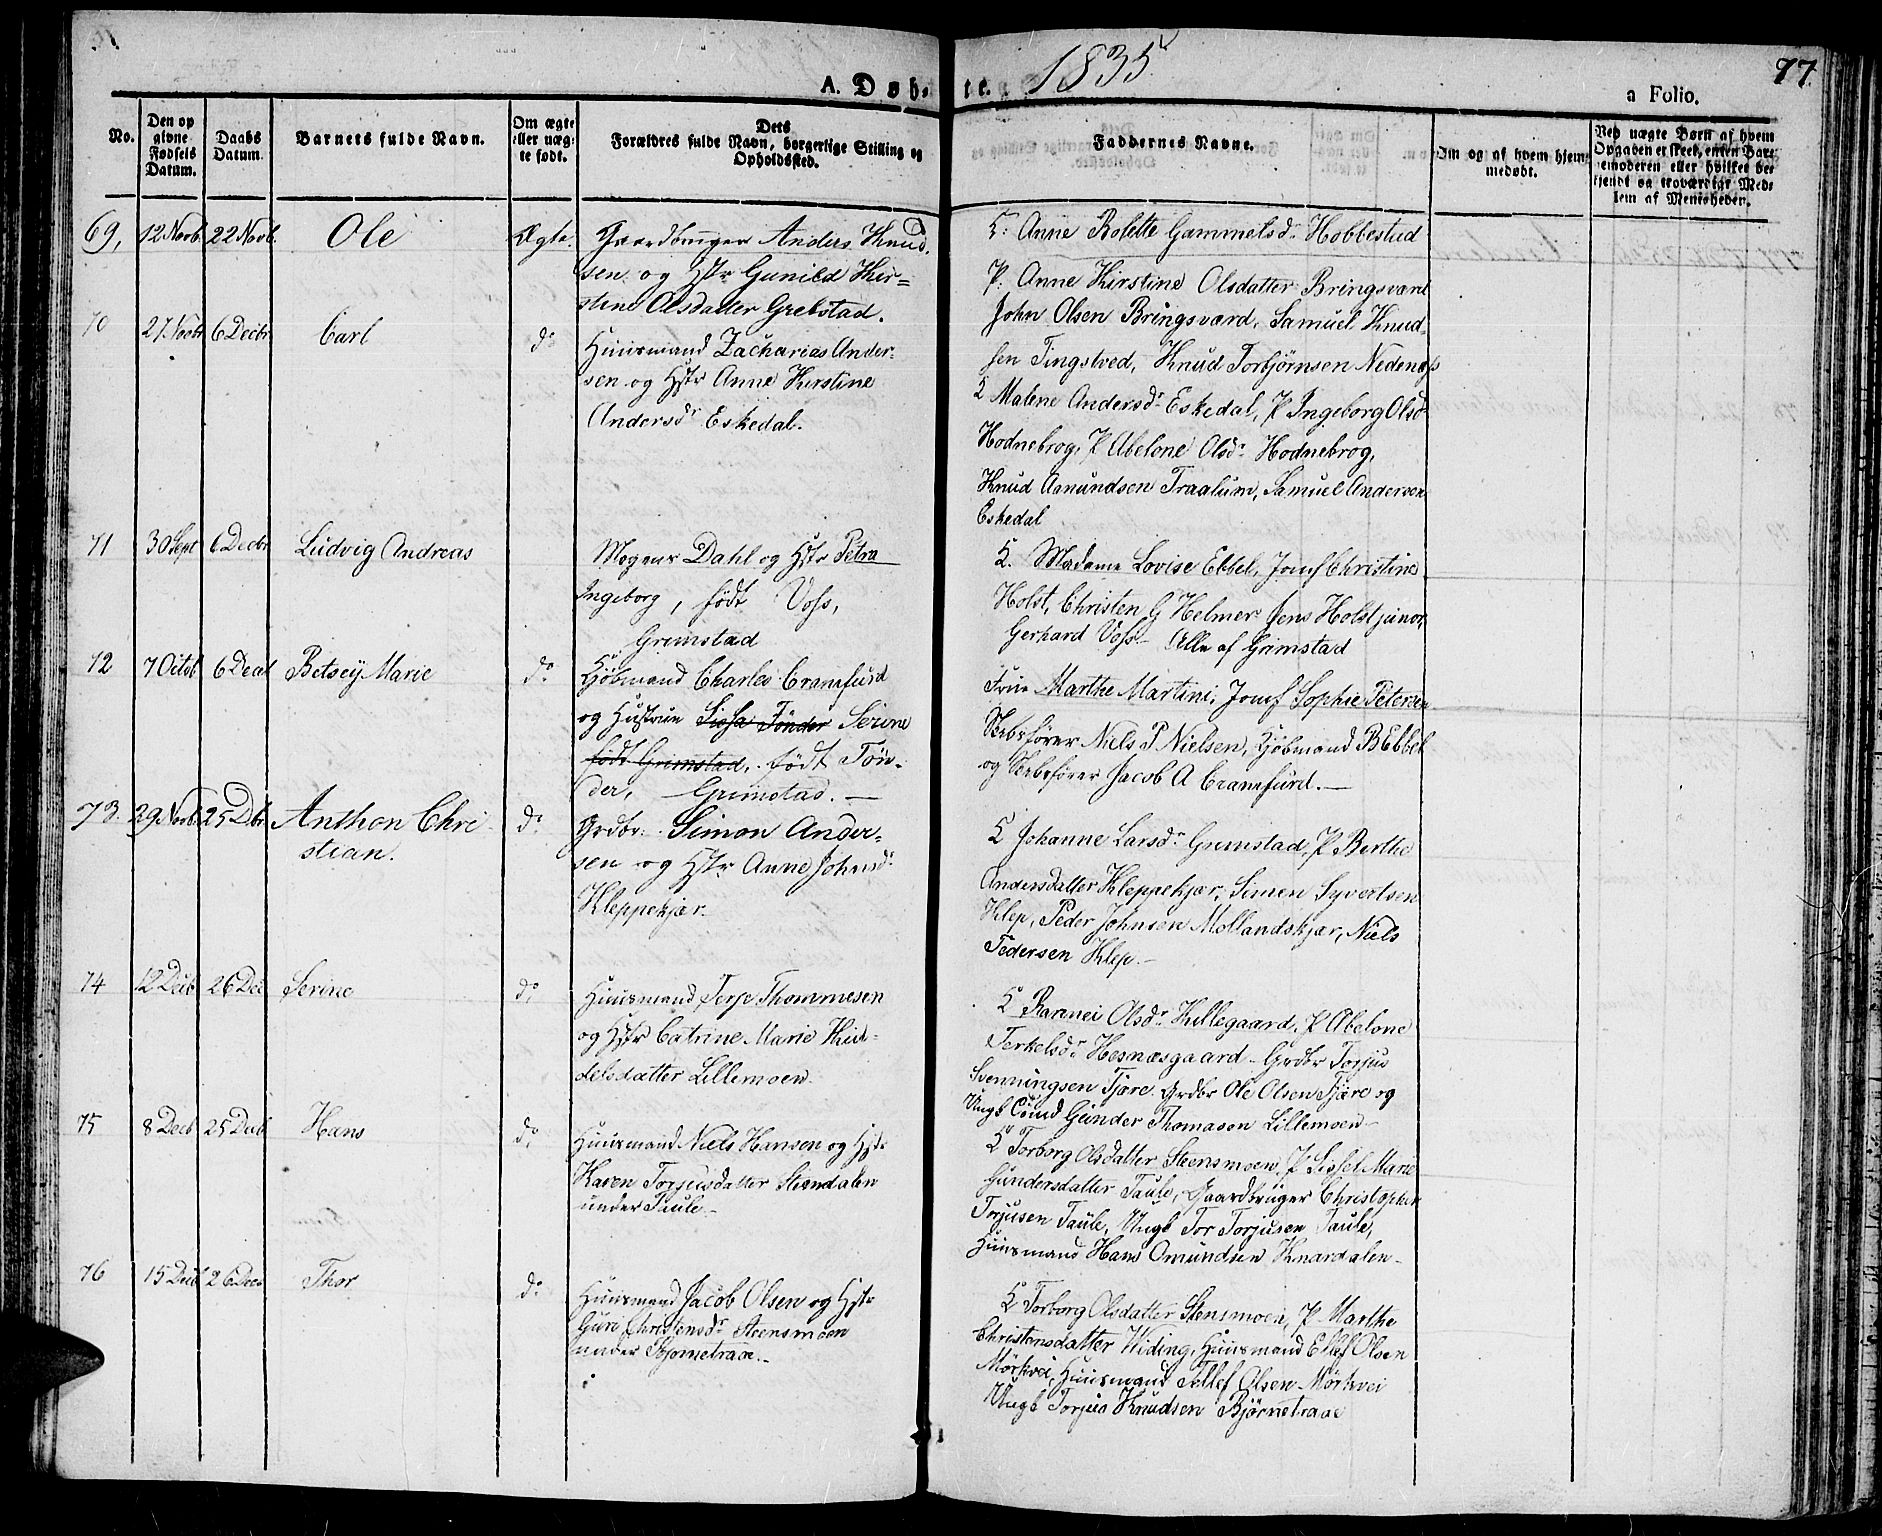 1835
77
A. Døbte.
a Folio.
No.
Den opgivne Fødsels Datum.
Daabs Datum.
Barnets fulde Navn.
Om ægte eller uægte født.
Dets Forældres fulde Navn, borgerlige Stilling og Opholdssted.
Faddernes Navne.
Om og af hvem hjemmedøbt.
Ved uægte Børn af hvem Opgaven er skeet, enten Barnemoderen eller hvilket bekjendt og troværdigt Medlem af Menigheden.
69, 12 Novb. 22 Novb. Ole Ægte. Gaardbruger Anders Knud-
sen og Hstr Gunild Kir-
stine Olsdatter Grebstad.
70 27. Novbr 6 Decbr Carl do Huusmand Zacharias Ander-
sen og Hstr Anne Kirstine
Andersdr Eskedal.
71 30 Sept 6 Decbr Ludvig Andreas Mogens Dahl og Hstr Petra
Ingeborg, födt Voss,
Grimstad
72 7 Octob 6 Decb Betsey Marie do. Kjöbmand Charles Crawfurd
og Hustrue Sissa Tönder Serine
födt Grimstad, födt Tön-
der, Grimstad. —
73. 29 Novb. 25 Dbr Anthon Chri-
stian. do. Grdbr. Simon Ander-
sen og Hstr Anne Johnsdr
Kleppekjær.
74 12 Decb 26 Dec Serine do. Huusmand Terje Thommesen
og Hstr Catrine Marie Kid-
delsdatter Lillemoen.
75 8 Decb 25 Decb Hans do. Huusmand Niels Hansen og Hstr
Karen Torjusdatter Steendalen
under Taule. -
76 15 Decb 26 Decb Thor do. Huusmand Jacob Olsen og Hstr
Guro Christensdr Steensmoen
under Bjornetraae. -
Anne Bolette Gammelsdr Hobbestad
P. Anne Kirstine Olsdatter Bringsværd
John Olsen Bringsværd, Samuel Knud-
sen Tingstved, Knud Torbjörnsen Nedenæss
Malene Andersdr Eskedal, P Ingeborg Olsdr
Hodnebrog, P Abelone Olsdr Hodnebrog,
Knud Asmundsen Traalum, Samuel Andersen
Eskedal
Madame Lovise Ebbel, Jomf Christine
Holst, Christen G Helmer Jens Holst junior,
Gerhard Voss - Alle af Grimstad
Frue Marthe Martini, Jomf Sophie Petersen
Skibsförer Niels P Nielsen, Kjöbmand B Ebbel
og Skibsförer Jacob A Crawfurd. —
Johanne Larsdr Grimstad, P Berthe
Andersdatter Kleppekjær, Simen Syvertsen
Klep, Peder Johnsen Mollandskjær, Niels
Pedersen Klep. -
Rannei Olsdr Killegaard, P Abelone
Terkelsdr Hesnæsgaard - Grdbr Torjus
Svenningsen Tjore. Grdbr Ole Olsen Tjore og
Ungk Gunder Thomason Lillemoen -
Torborg Olsdatter Steensmoen, P Sissel Marie
Gundersdatter Taule, Gaardbruger Christopher
Torjusen Taule, Ungk Tor Torjusen Taule,
Huusmand Hans Omundsen Knardalen -
Torborg Olsdatter Stensmoen, P Marthe
Christensdatter Widing, Huusmand Ellef Olsen
Mörkvei, Huusmand Tellef Olsen Mörkvei
Ungk Torjus Knudsen Björnetraae